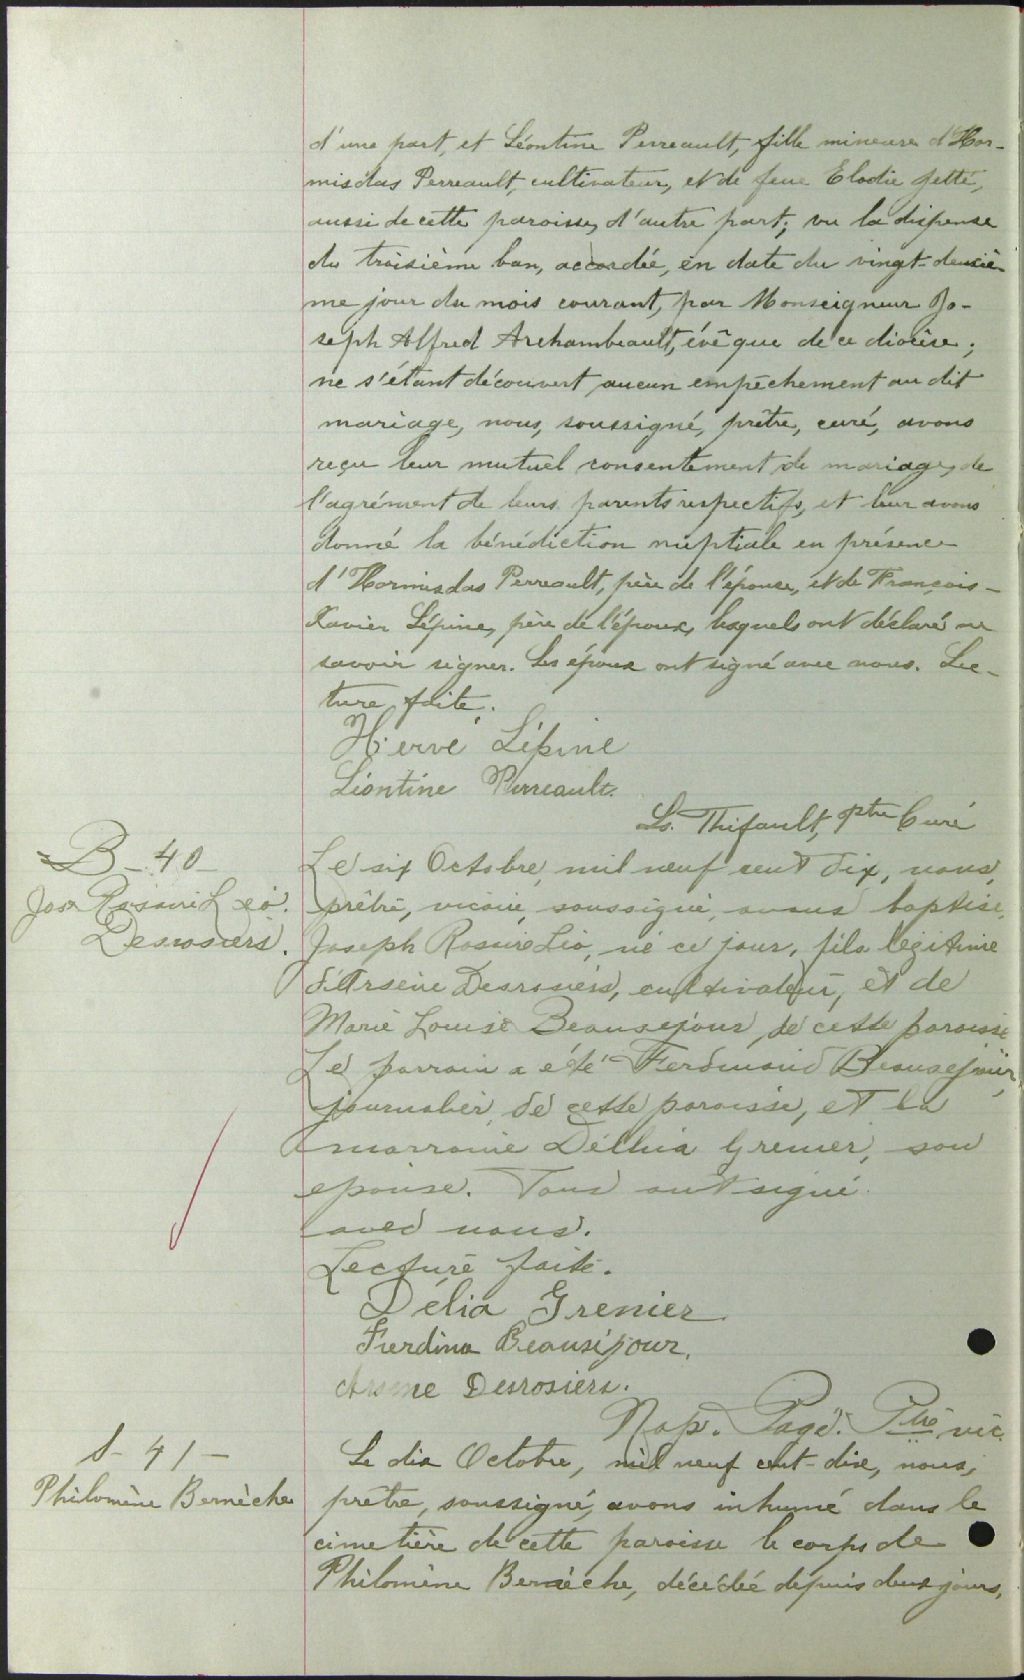 d'une part, et Léontine Perreault, fille mineure d'Hor-
misdas Perreault, cultivateur, et de feue Elodie Jetté,
aussi de cette paroisse, d'autre part; vu la dispense
du troisième ban, accordée, en date du vingt-deuxiè-
me jour du mois courant, par Monseigneur Jo-
seph Alfred Archambeault, évêque de ce diocèse;
ne s'étant découvert aucun empêchement au dit
mariage, nous, soussigné, prêtre, curé, avons
reçu leur mutuel consentement de mariage, de
l'agrément de leurs parents respectifs, et leur avons
donné la bénédiction nuptiale en présence
d'Hormisdas Perreault, père de l'épouse, et de François-
Xavier Lépine, père de l'époux, lesquels ont déclaré ne
savoir signer. Les époux ont signé avec nous. Lec-
ture faite.
Hervé Lépine
Léontine Perreault.
Ls. Thifault, ptre Curé
B-40-
Jos. Rosaire Léo.
Desrosiers.
Le six Octobre, mil neuf cent dix, nous,
prêtre, vicaire, soussigné, avons baptisé,
Joseph Rosaire Léo, né ce jour, fils légitime
d'Arsène Desrosiers, cultivateur, et de
Marie Louise Beausejour, de cette paroisse
Le parrain a été Ferdinand Beausejour,
journalier, de cette paroisse, et la
marraine Délhia Grenier, son
épouse. Tous ont signé
avec nous.
Lecture faite.
Délia Grenier
Ferdina Beauséjour.
Arsene Desrosiers.
Nap. Pagé. Ptre vic.
S-41-
Philomène Bernèche
Le dix Octobre, mil neuf cent-dix, nous,
prêtre, soussigné, avons inhumé dans le
cimetière de cette paroisse le corps de
Philomène Bernèche, décédée depuis deux jours,